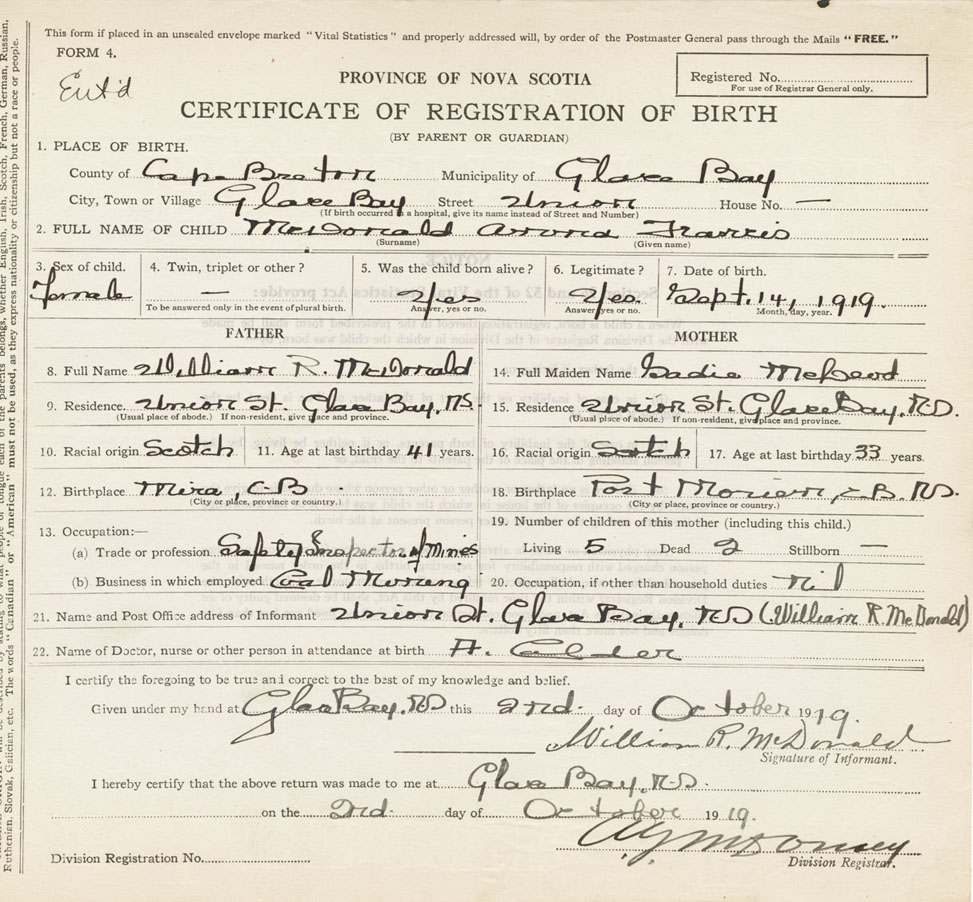 This form if placed in an unsealed envelope marked "Vital Statistics" and properly addressed will, by order of the Postmaster General pass through the Mails "FREE."
FORM 4.
Ent'd
PROVINCE OF NOVA SCOTIA
Registered No.
For use of Registrar General only.
CERTIFICATE OF REGISTRATION OF BIRTH
(BY PARENT OR GUARDIAN)
1. PLACE OF BIRTH.
County of Cape Breton Municipality of Glace Bay
City, Town or Village Glace Bay Street Union House No. —
(If birth occurred in a hospital, give its name instead of Street and Number)
2. FULL NAME OF CHILD McDonald Francis
(Surname) (Given name)
3. Sex of child. 4. Twin, triplet or other? 5. Was the child born alive? 6. Legitimate? 7. Date of birth.
Female — Yes Yes. Sept. 14, 1919.
To be answered only in the event of plural birth. Answer, yes or no. Answer yes or no. Month, day, year.
FATHER MOTHER
8. Full Name William R. McDonald 14. Full Maiden Name Sadie McLeod
9. Residence. Union St. Glace Bay, NS. 15. Residence Union St. Glace Bay, N.S.
(Usual place of abode.) If non-resident, give place and province. (Usual place of abode.) If non-resident, give place and province.
10. Racial origin Scotch 11. Age at last birthday 41 years. 16. Racial origin Scotch 17. Age at last birthday 33 years.
12. Birthplace Mira, CB 18. Birthplace Port Morien, C.B. N.S.
(City or place, province or country.) (City or place, province or country.)
13. Occupation:— 19. Number of children of this mother (including this child.)
(a) Trade or profession Safety Inspector of Mines Living 5 Dead 2 Stillborn —
(b) Business in which employed Coal Mining 20. Occupation, if other than household duties nil
21. Name and Post Office address of Informant Union St. Glace Bay, NS (William R. McDonald)
22. Name of Doctor, nurse or other person in attendance at birth A. Calder
I certify the foregoing to be true and correct to the best of my knowledge and belief.
Given under my hand at Glace Bay, NS this 2nd. day of October 1919.
William R. McDonald
Signature of Informant.
I hereby certify that the above return was made to me at Glace Bay, N.S.
on the 2nd. day of October 1919.
Division Registrar.
Division Registration No.
Ruthenian, Slovak, Galician, etc. The words "Canadian" or "American" must not be used, as they express nationality or citizenship but not a race or people.